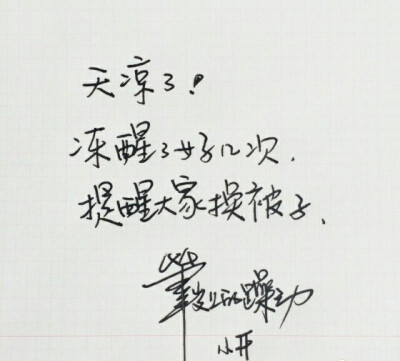 天凉了!
冻醒了好几次.
提醒大家换被子.
上的躁动
小开